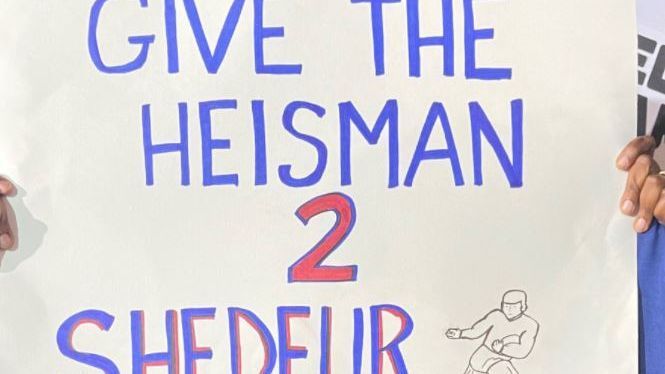 GIVE THE
HEISMAN
2
SHEDEUR